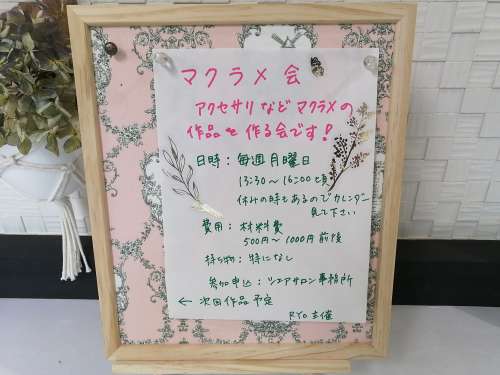 マクラメ会
アクセサリなどマクラメの
作品を作る会です!
日時:毎週月曜日
13:30~16:00頃
休みの時もあるのでカレンダー
見て下さい
費用:材料費
500円~1000円前後
持ち物:特になし
参加申込:シェアサロン事務所
← 次回作品予定
RYO主催